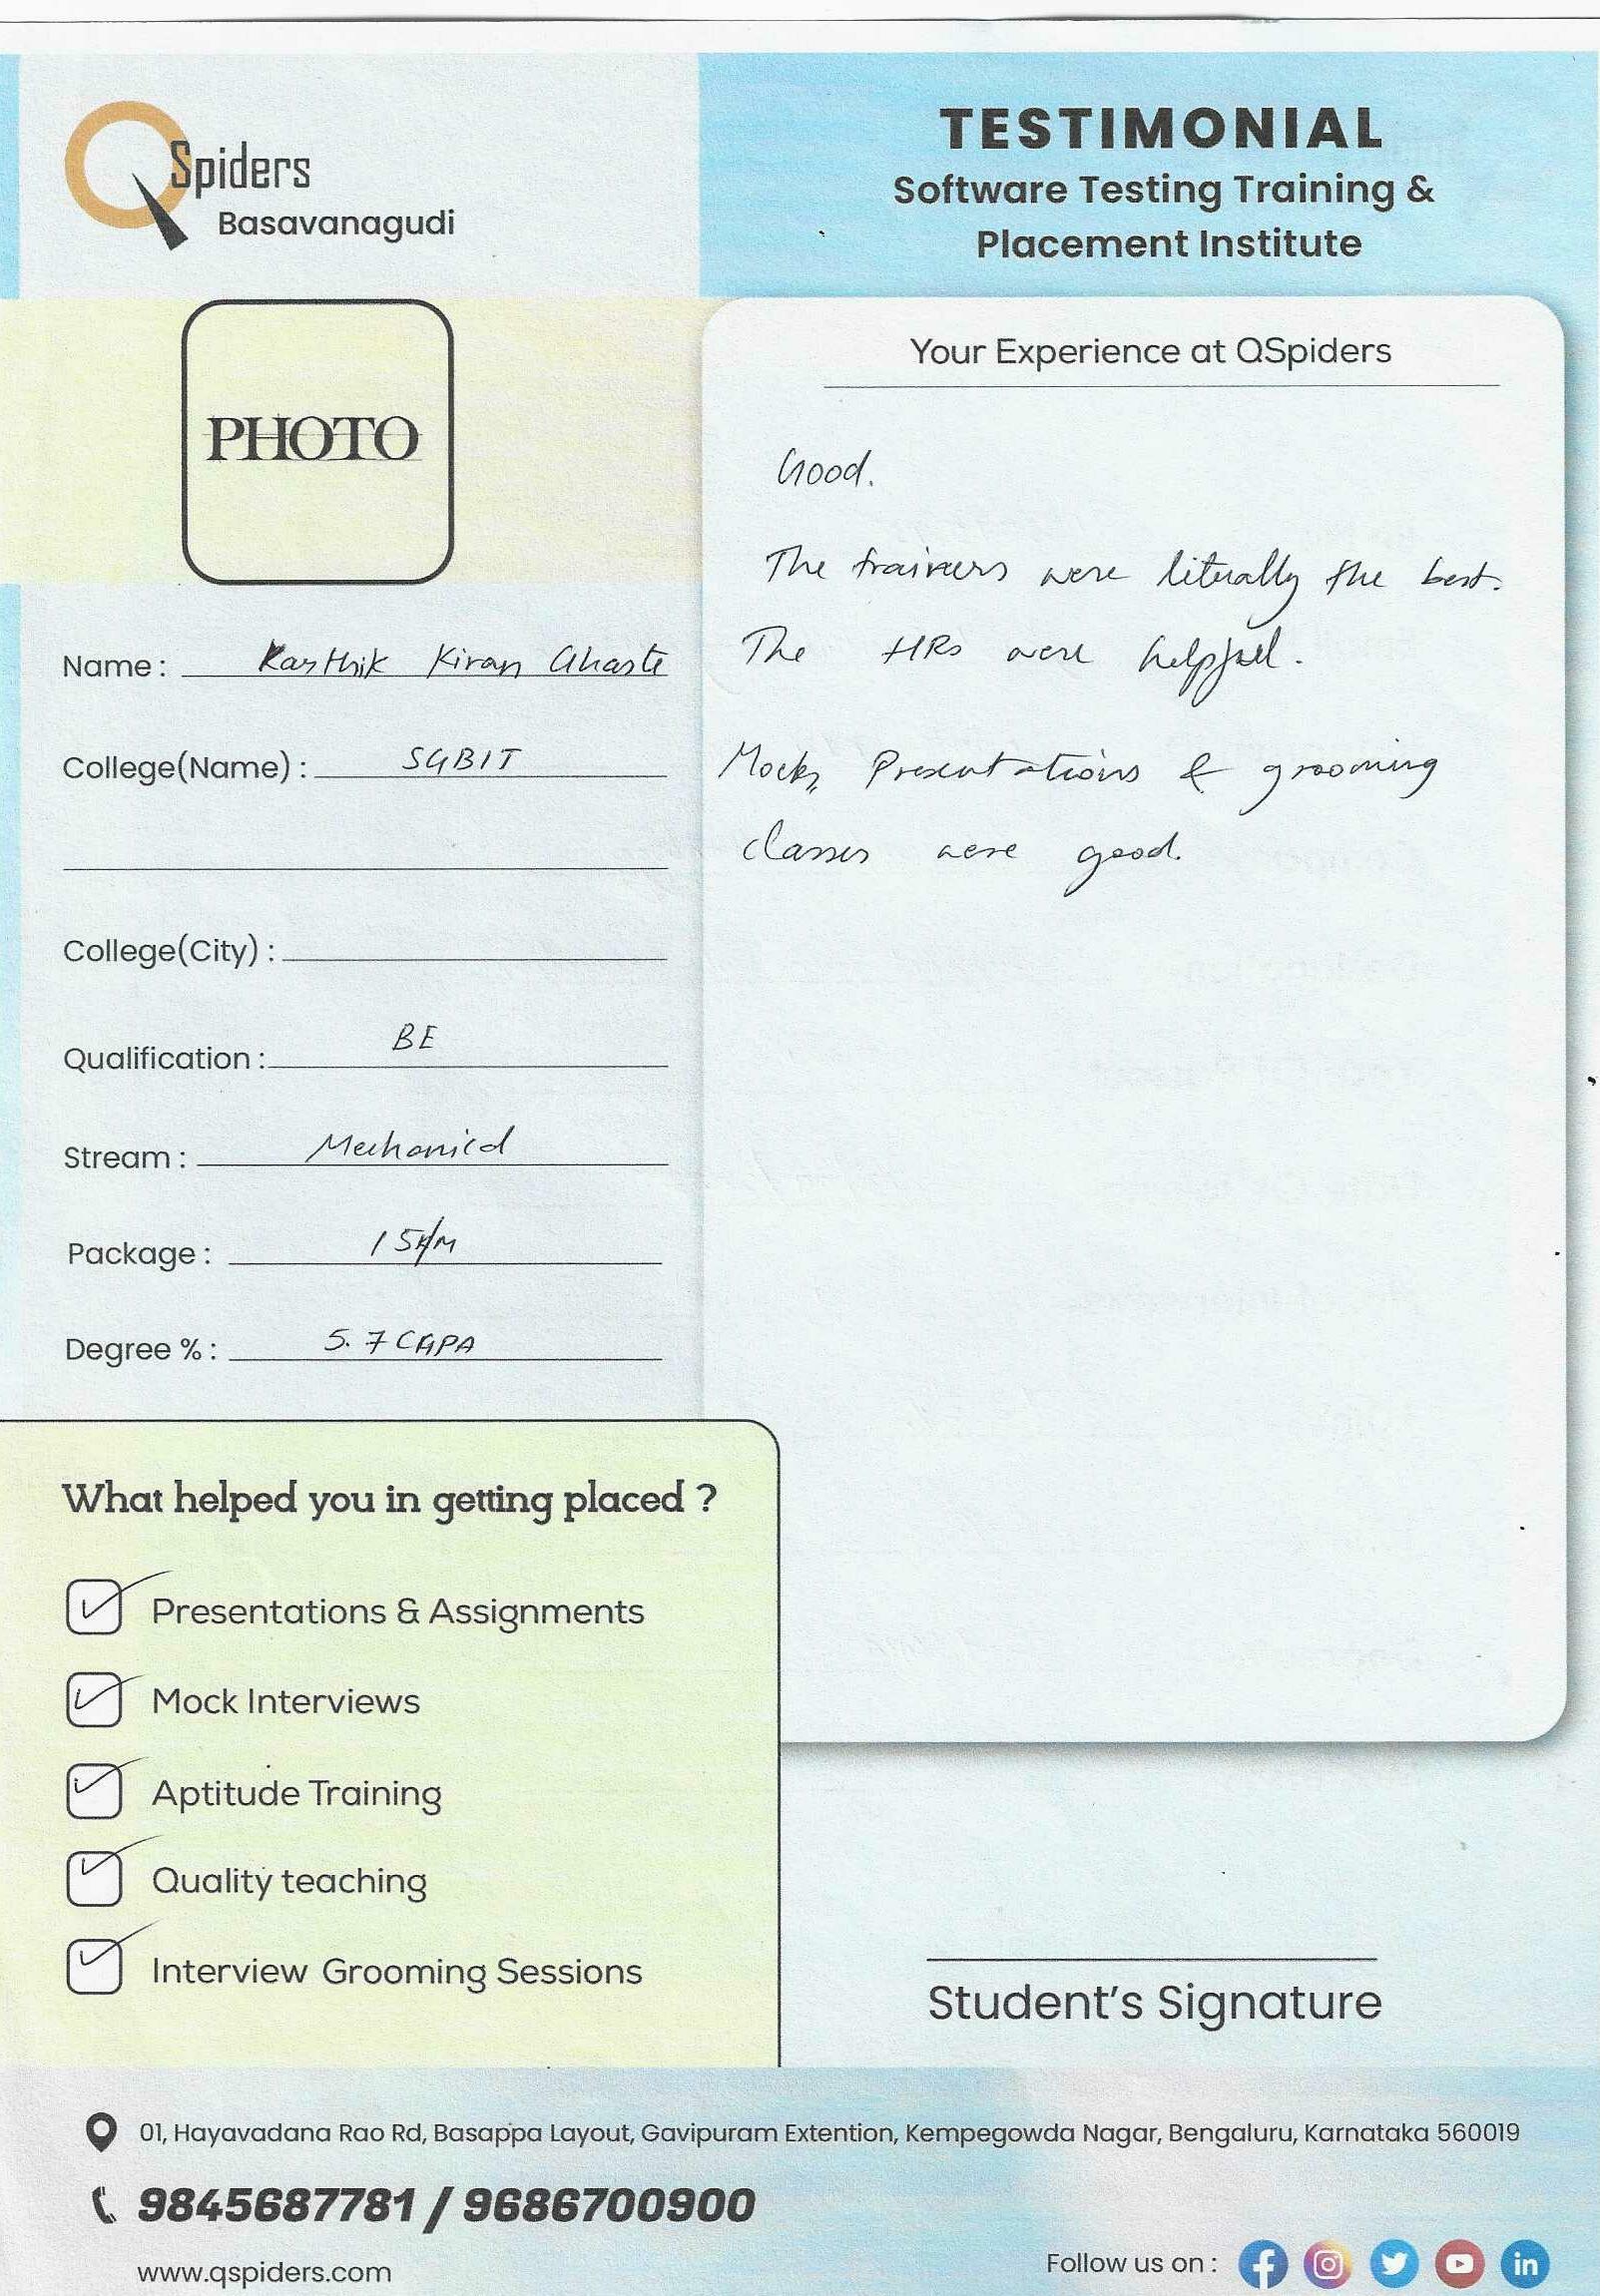 QSpiders
Basavanagudi
TESTIMONIAL
Software Testing Training &
Placement Institute
PHOTO
Name : Karthik Kiran Ghaste
College(Name) : SGBIT
College(City) :
Qualification : BE
Stream : Mechanical
Package : 15K/M
Degree % : 5.7 CGPA
Your Experience at QSpiders
Good.
The trainers were literally the best.
The HRs were helpful.
Mocks, Presentations & grooming
classes were good.
What helped you in getting placed ?
Presentations & Assignments
Mock Interviews
Aptitude Training
Quality teaching
Interview Grooming Sessions
Student's Signature
01, Hayavadana Rao Rd, Basappa Layout, Gavipuram Extention, Kempegowda Nagar, Bengaluru, Karnataka 560019
9845687781 / 9686700900
www.qspiders.com
Follow us on :